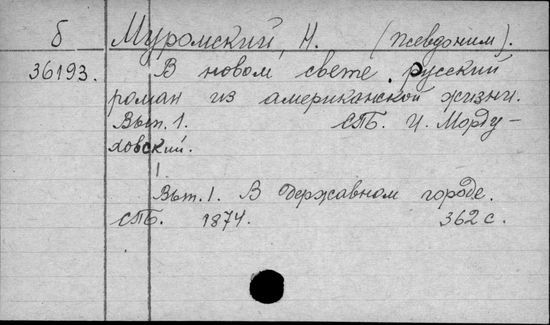 б Муромский, Н. (псевдоним).
36193. В новом свете. Русский
роман из американской жизни.
Вып. 1. СПБ. И. Морду-
ховский.
1.
Вып. 1. В Державном городе.
СПБ. 1874. 362 с.